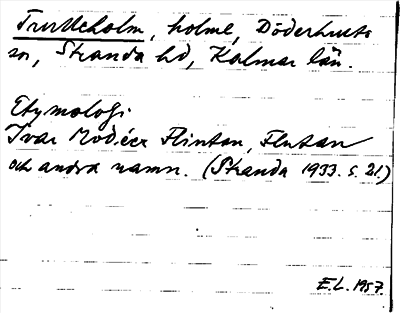 holme, Döderhults
sn, Stranda hd, Kalmar län.
Etymologi
Ivar Modéer Flintan, Flutan
och andra namn. (Stranda 1933. s. 21.)
E.L. 1957.